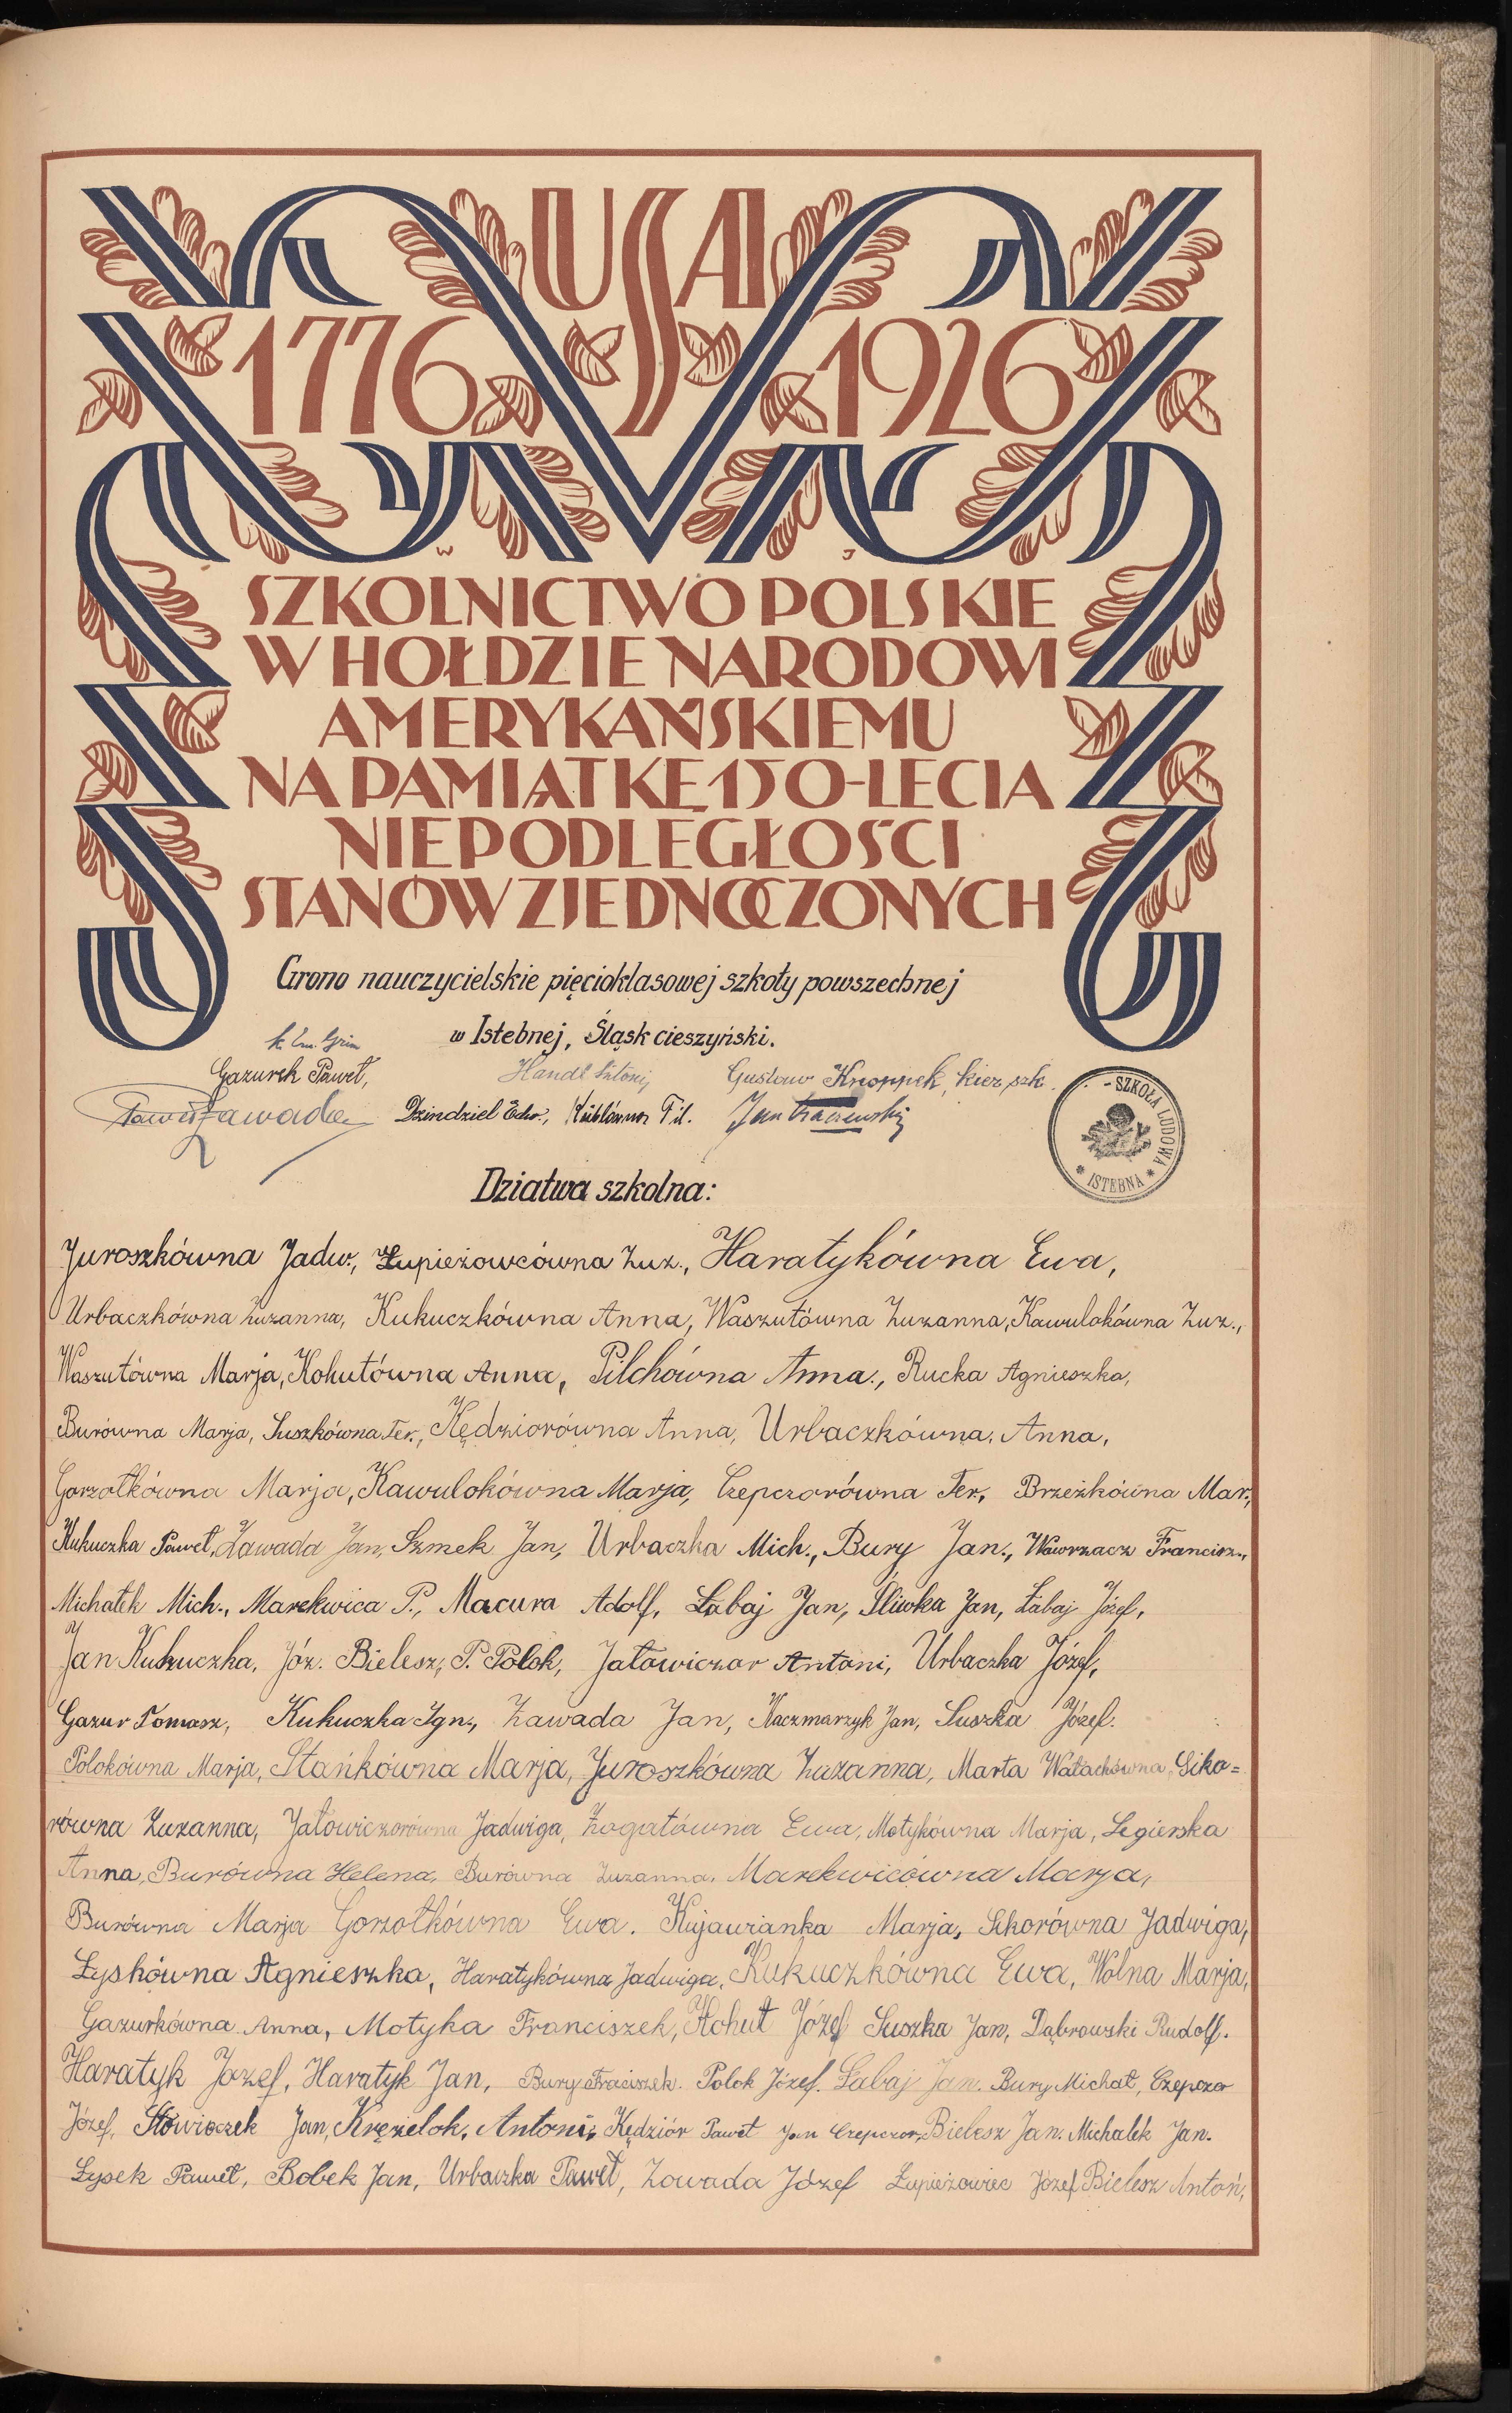 USA
1776 1926
W J
SZKOLNICTWO POLSKIE
W HOŁDZIE NARODOWI
AMERYKAŃSKIEMU
NA PAMIĄTKĘ 150-LECIA
NIEPODLEGŁOŚCI
STANÓW ZJEDNOCZONYCH
Grono nauczycielskie pięcioklasowej szkoły powszechnej
w Istebnej, Śląsk cieszyński.
Gazurek Paweł, Handl Antoni, Gustaw Knoppek, kier. szk.
Paweł Zawada Dzindziel Edw., Jan
SZKOŁA LUDOWA * ISTEBNA *
Dziatwa szkolna:
Juroszkówna Jadw., Łupieżowcówna Zuz., Haratykówna Ewa,
Urbaczkówna Zuzanna, Kukuczkówna Anna, Waszutówna Zuzanna, Kawulokówna Zuz.,
Waszutówna Marja, Kohutówna Anna, Pilchówna Anna., Rucka Agnieszka,
Burówna Marja, Suszkówna Ter., Kędziorówna Anna, Urbaczkówna, Anna,
Gorzołkówna Marja, Kawulokówna Marja, Czepczorówna Ter, Brzeżkówna Mar.,
Kukuczka Paweł, Zawada Jan, Szmek Jan, Urbaczka Mich., Bury Jan., Wawrzacz Francisz.,
Michałek Mich., Marekwica P., Macura Adolf, Łabaj Jan, Śliwka Jan, Łabaj Józef,
Jan Kukuczka, Józ. Bielesz, P. Polok, Jałowiczor Antoni, Urbaczka Józef,
Gazur Tomasz, Kukuczka Ign., Zawada Jan, Kaczmarzyk Jan, Suszka Józef.
Polokówna Marja, Stańkówna Marja, Juroszkówna Zuzanna, Marta Wałachówna, Siko=
równa Zuzanna, Jałowiczorówna Jadwiga, Zogatówna Ewa, Motykówna Marja, Legierska
Anna, Burówna Helena, Burówna Zuzanna, Marekwicówna Marja,
Burówna Marja Gorzołkówna Ewa. Kujawianka Marja, Sikorówna Jadwiga,
Łyskówna Agnieszka, Haratykówna Jadwiga, Kukuczkówna Ewa, Wolna Marja,
Gazurkówna Anna, Motyka Franciszek, Kohut Józef Suszka Jan, Dąbrowski Rudolf.
Haratyk Jozef, Haratyk Jan, Bury Fraciszek. Polok Józef. Łabaj Jan. Bury Michał, Czepczor
Józef, Słowioczek Jan, Krężelok, Antoni, Kędziór Paweł Jan Czepczor, Bielesz Jan. Michałek Jan.
Łysek Paweł, Bobek Jan, Urbaczka Paweł, Zowada Józef Łupieżowiec Józef Bielesz Antoń,